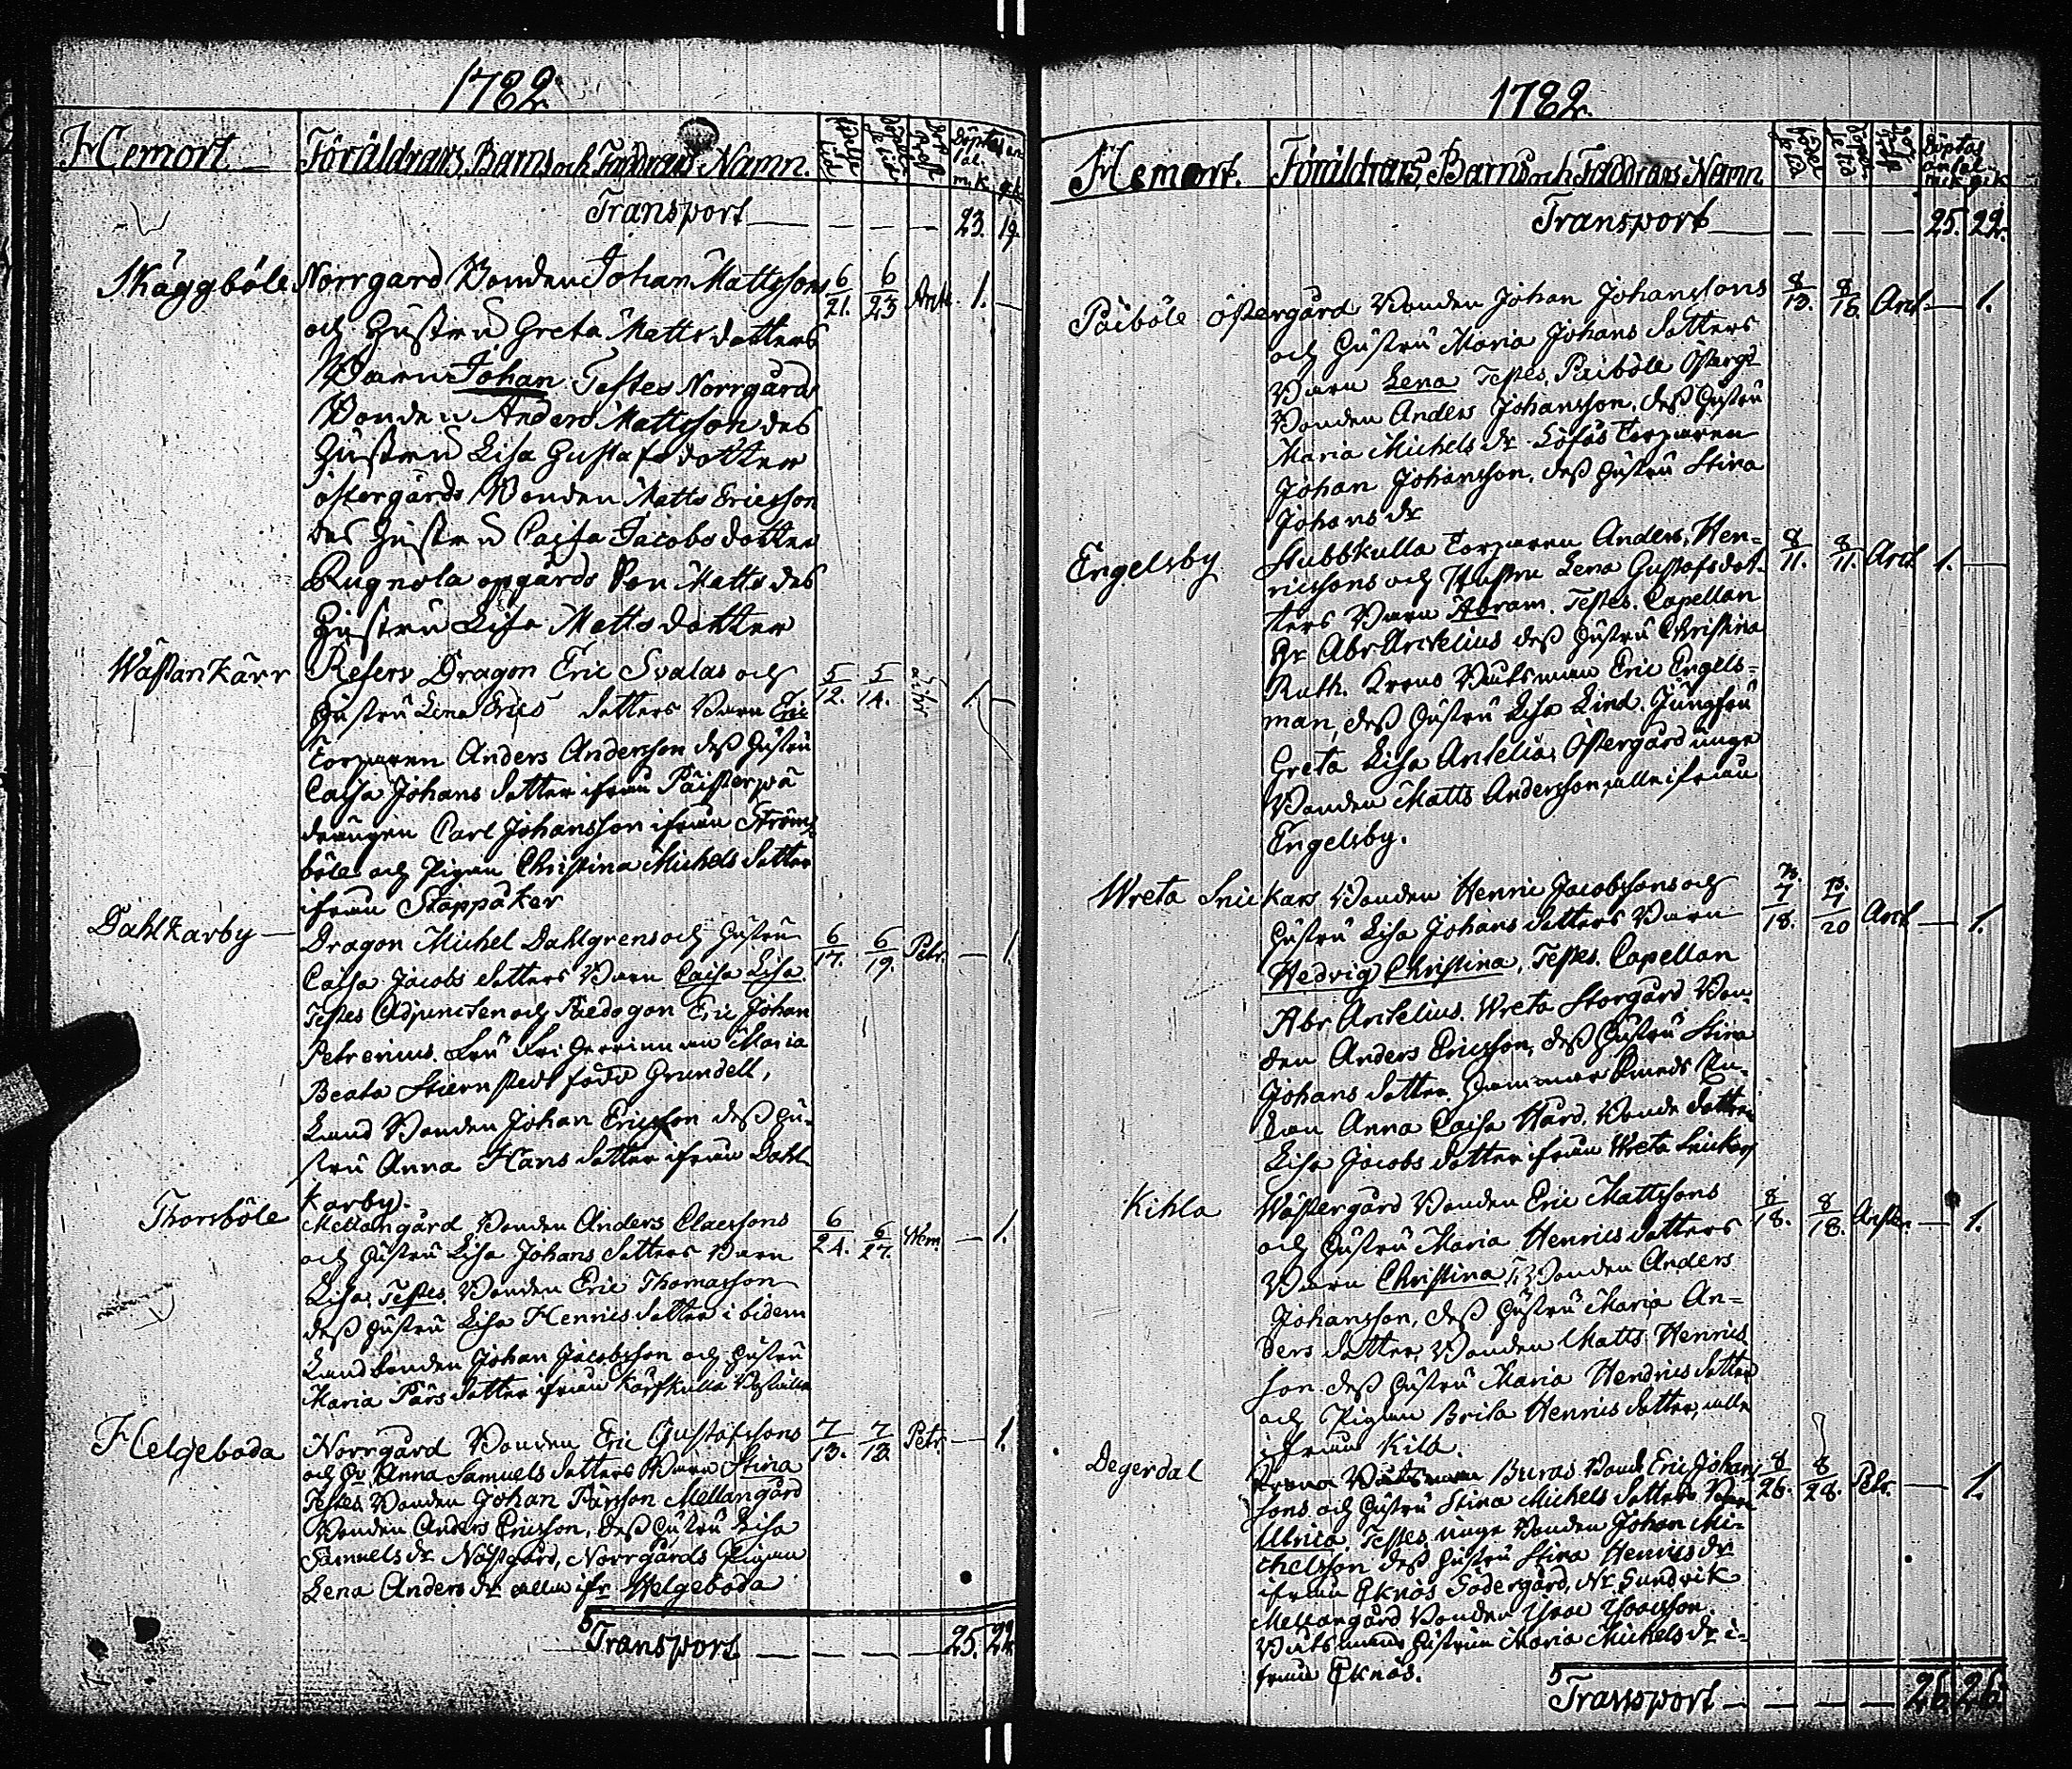 1782.
Hemort
Föräldrars, Barns och Faddrars Namn.
Födelse tid
Döpelse tid
Döp Prest
Döptas antal.
m.k. qk.
Transport — — — — 23. 19.
Skäggböle
Norrgård Bonden Johan Mattssons 6/21. 6/23 Arct. 1. —
och Hustru Greta Matts dotters
Barn Johan Testes Norrgårds
Bonden Anders Mattsson des
Hustru Lisa Gustafs dotter
östergårds Bonden Matts Ericsson
des Hustru Caisa Jacobs dotter
Rugnola opgårds Matts des
Hustru Lisa Matts dotter
Wästankärr
Reserv Dragon Eric Svalas och 5/12. 5/14. 1
Hustru Lena Erics dotters Barn Eric
Torparen Anders Andersson dess Hustru
Caisa Johans dotter ifrån Päisterpä
drängen Carl Johansson ifrån Ströms
böle och Pigan Christina Michels dotter
ifrån Stappåker
Dahlkarby
Dragon Michel Dahlgrens och Hustru 6/17. 6/19. Petr. — 1.
Caisa Jacobs dotters Barn Caisa Lisa.
Testes Adjuncten och Paedagon Eric Johan
Petrenius. Fru Friherrinnan Maria
Beata Stiernstedt född Grundell,
Land Bonden Johan Ericsson dess Hu-
stru Anna Hans dotter ifrån Dahl-
karby.
Thorsböle
Mellangård Bonden Anders Claessons 6/24. 6/27. Wem. — 1.
och Hustru Lisa Johans dotters Barn
Lisa, Testes. Bonden Eric Thomasson
dess Hustru Lisa Henrics dotter ibidem
Landbonden Johan Jacobsson och Hustru
Maria Pärs dotter ifrån Karfkulla
Helgeboda
Norrgård Bonden Eric Gustafssons 7/13. 7/13. Petr. — 1.
och Hu Anna Samuels dotters Barn Stina
Testes Bonden Johan Pärsson Mellangård
Bonden Anders Ericsson, dess Hustru Lisa
Samuels dr Nästgård, Norrgårds Pigan
Lena Anders dr alla ifr. Helgeboda
5
Transport — — — — 25. 22.
1782.
Hemort.
Föräldrars, Barns och Faddrars Namn
Födelse tid
Döpelse tid
Döp Prest
Döptas antal
mk qk
Transport — — — — 25. 22.
Paiböle
östergård Bonden Johan Johanssons 8/13. 8/18. Arct — 1.
och Hustru Maria Johans dotters
Barn Lena Testes, Paiböle Östergd
Bonden Anders Johansson, dess Hustru
Maria Michels dr Löfås Torparen
Johan Johansson, dess Hustru Stina
Johans dr
Engelsby
Stubbkulla Torparen Anders, Hen-
ricssons och Hustru Lena Gustafs dot- 8/11. 8/11. Arct 1. —
ters Barn Abram. Testes. Capellan
Hr Abr Arctelius dess Hustru Christina
Ruth. Krono Båtsman Eric Engels-
man, dess Hustru Lisa Lind. Jungfru
Greta Lisa Arctelia, Östergård unge
Bonden Matts Andersson, alle ifrån
Engelsby.
Wreta Snickars
Bonden Henric Jacobssons och 7/18. 7/20 Arct — 1.
Hustru Lisa Johans dotters Barn
Hedvig Christina, Testes. Capellan
Abr Arctelius. Wreta Storgård Bon-
den Anders Ericsson, dess Hustru Stina
Johans dotter. Hammar Smeds En-
kan Anna Caisa Hård. Bonde dotter
Lisa Jacobs dotter ifrån Wreta Snickars
Kihla
Wästergård Bonden Eric Mattssons 8/18. 8/18. — 1.
och Hustru Maria Henrics dotters
Barn Christina, T. Bonden Anders
Johansson, dess Hustru Maria An-
ders dotter, Bonden Matts Henrics
son dess Hustru Maria Hendrics dotter
och Pigan Brita Henrics dotter, alla
ifrån Kila.
Degerdal
Krono Båtsman Buras Bond Eric Johans 8/26. 8/28. Petr. — 1.
sons och Hustru Stina Michels dotters Barn
Ulrica, Testes, unge Bonden Johan Mi-
chelsson dess Hustru Stina Henrics dr
ifrån Eknäs Södergård, Nr. Sundvik
Mellangård Bonden
Båtsmans Hustrun Maria Michels dr i-
från Eknäs.
5
Transport — — — — 26. 26.